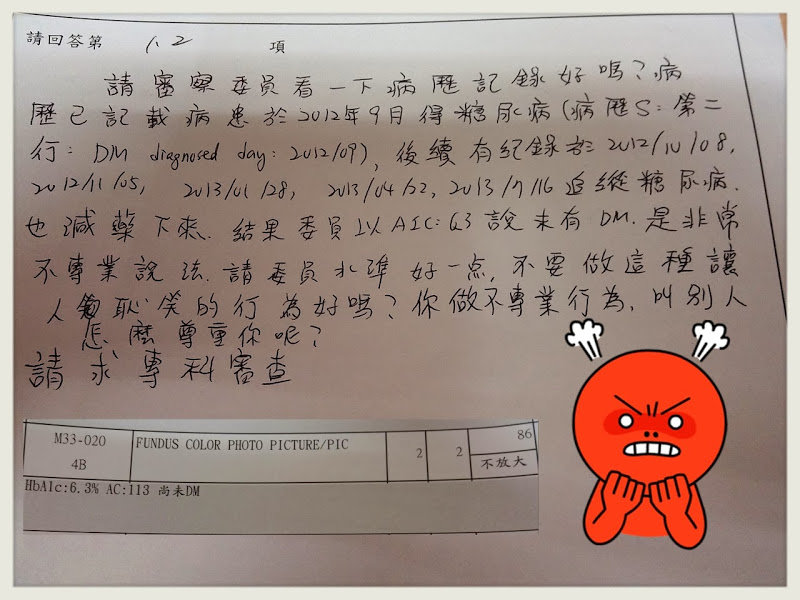 請回答第 1.2 項
請審察委員看一下病歷記錄好嗎?病
歷已記載病患於2012年9月得糖尿病(病歷S:第二
行: DM diagnosed day: 2012/09), 後續有紀錄於2012/10/08,
2012/11/05, 2013/01/28, 2013/04/22, 2013/7/16 追縱糖尿病.
也減藥下來. 結果委員以A1C:6.3說未有DM. 是非常
不專業說法. 請委員水準好一点, 不要做這種讓
人恥笑的行為好嗎? 你做不專業行為, 叫別人
怎麼尊重你呢?
請求專科審查
M33-020 FUNDUS COLOR PHOTO PICTURE/PIC 2 2 86
4B 不放大
HbA1c:6.3% AC:113 尚未DM